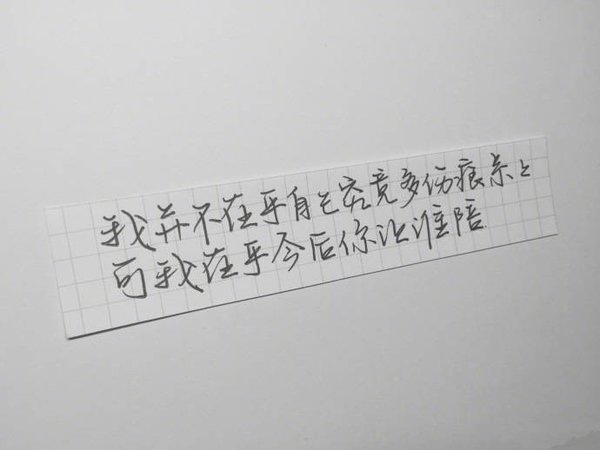 我并不在乎自己究竟多伤痕累累
可我在乎今后你让谁陪